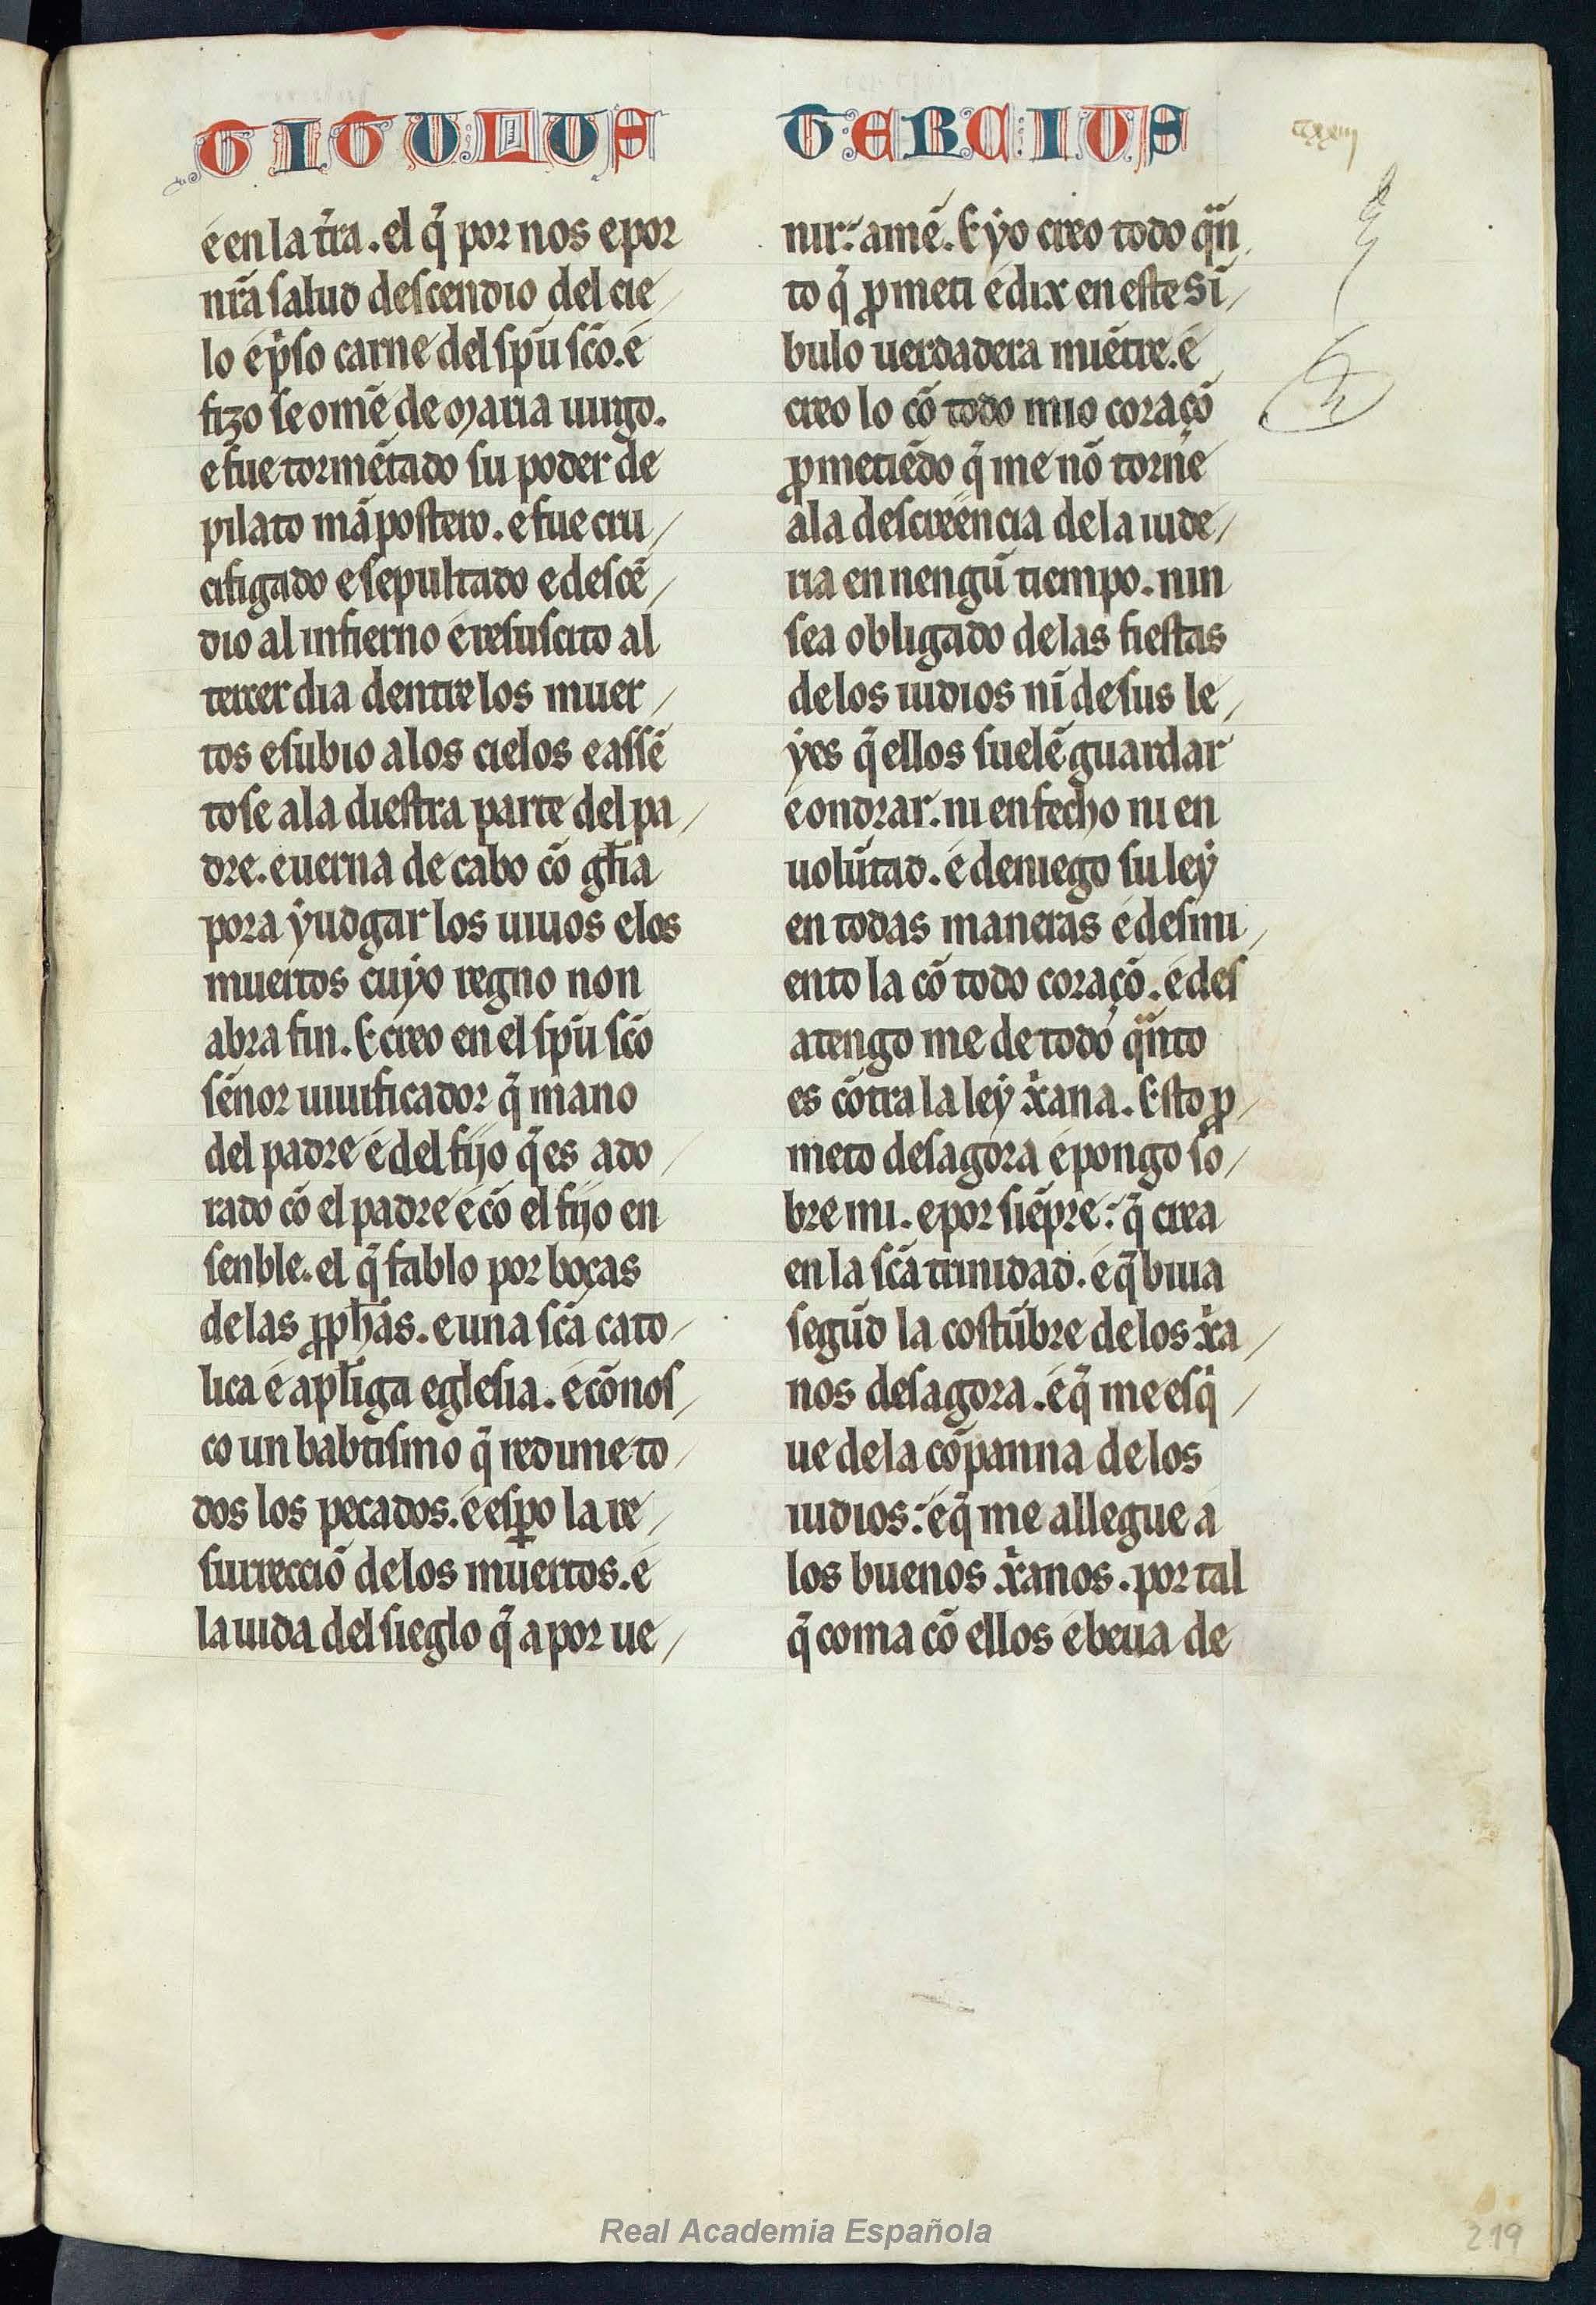 TITULUS TERCIUS
é en la tr̃a. el q̃ por nos e por
nr̃a salud descendio del cie /
lo é p̃so carne del sp̃u sc̃o. é
fizo se omẽ de maria uirgo.
e fue tormẽtado su poder de
pilato mã postero. e fue cru /
cifigado e sepultado e descẽ /
dio al infierno é resuscito al
tercer dia dentre los muer /
tos e subio alos cielos e assẽ
tose ala diestra parte del pa /
dre. e uerna de cabo cõ gl̃ia
pora ẏudgar los uiuos e los
muertos cuẏo regno non
abra fin. E creo en el sp̃u sc̃o
sẽnor uiuificador q̃ mano
del padre é del fijo q̃ es ado /
rado cõ el padre é cõ el fijo en
senble. el q̃ fablo por bocas
delas ꝓph̃as. e una sc̃a cato /
lica é apl̃iga eglesia. é cõnos /
co un babtismo q̃ redime to /
dos los pecados. é esꝑo la re /
surrecciõ delos muertos. é
la uida del sieglo q̃ a por ue /
nir: amẽ. E ẏo creo todo qũn
to q̃ ꝓmeti é dix en este si /
bulo uerdadera miẽtre. é
creo lo cõ todo mio coraçõ
ꝓmetiẽdo q̃ me nõ torne
ala descreencia dela iude /
ria en nengũ tiempo. nin
sea obligado delas fiestas
delos iudios nĩ de sus le /
ẏes q̃ ellos suelẽ guardar
é ondrar. ni en fecho ni en
uolũtad. é deniego su leẏ
en todas maneras é desmi /
ento la cõ todo coraçõ. é des
atengo me de todo qũnto
es cõtra la leẏ xr̃ana. Esto ꝓ /
meto desagora é pongo so /
bre mi. e por siẽpre: q̃ crea
en la sc̃a trinidad. é q̃ biua
segũd la costũbre delos xr̃a /
nos desagora. é q̃ me esq̃ /
ue dela cõpanna delos
iudios: é q̃ me allegue a
los buenos xr̃anos. por tal
q̃ coma cõ ellos é beua de
Real Academia Española
219